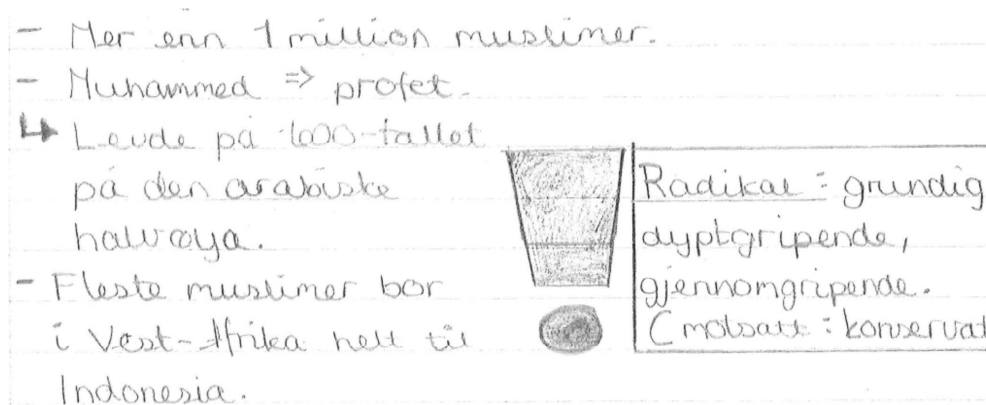 - Mer enn 1 million muslimer.
- Muhammed => profet.
↳ Levde på 600-tallet
på den arabiske
halvøya.
- Fleste muslimer bor
i Vest-Afrika helt til
Indonesia.
Radikal: grundig
dyptgripende,
gjennomgripende.
(motsatt: konservat